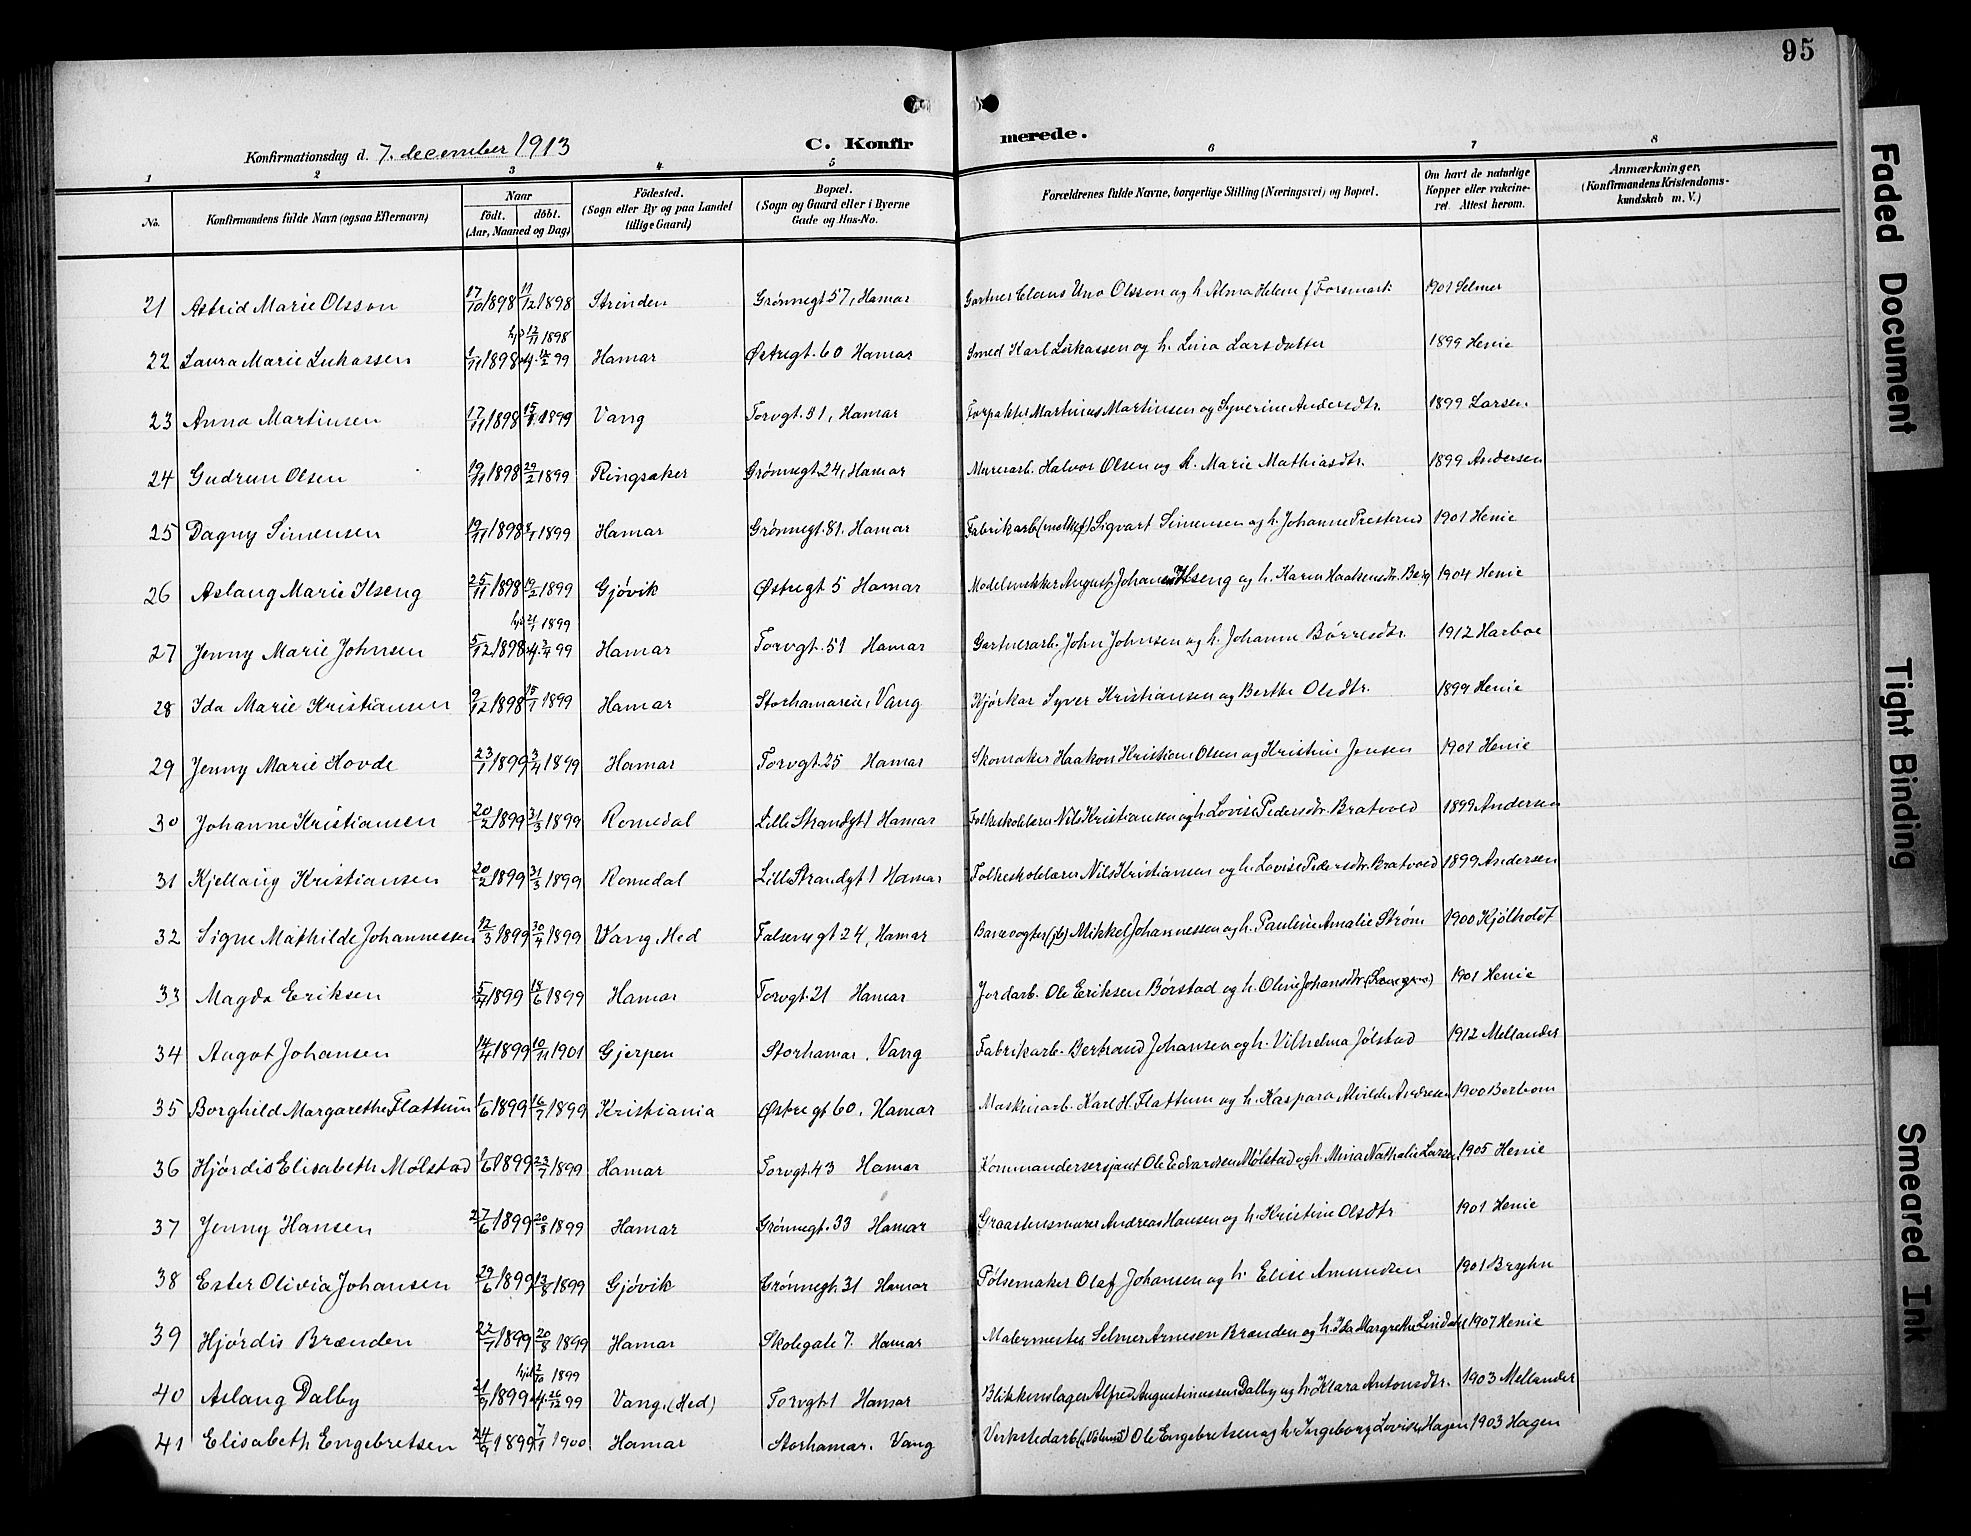 95
Konfirmationsdag d. 7. december 1913
C. Konfirmerede.
1 2 3 4 5 6 7 8
No. Konfirmandens fulde Navn (ogsaa Efternavn) Naar født. døbt. (Aar, Maaned og Dag) Fødested. (Sogn eller By og paa Landet tillige Gaard) Bopæl. (Sogn og Gaard eller i Byerne Gade og Hus-No. Forældrenes fulde Navne, borgerlige Stilling (Næringsvei) og Bopæl. Om havt de naturlige Kopper eller vakcineret. Attest herom. Anmærkninger. (Konfirmandens Kristendomskundskab m. V.)
21 Astrid Marie Olsson 17/10 1898 11/12 1898 Strinden Grønnegt 57, Hamar Gartner Claus Uno Olsson og h. Alma Helena f. Forsmark 1901 Selmer
hj. 12/11 1898
22 Laura Marie Lukassen 1/11 1898 12/2 99 Hamar Østregt. 60 Hamar Smed Karl Lukassen og h. Lina Larsdatter 1899 Henie
23 Anna Martinsen 17/11 1898 15/1 1899 Vang Torvgt. 31, Hamar Forpakter Martinus Martinsen og Syverine Andersdtr. 1899 Larsen
24 Gudrun Olsen 19/11 1898 29/2 1899 Ringsaker Grønnegt. 24, Hamar Murerarb. Halvor Olsen og h. Marie Mathiasdtr. 1899 Andersen
25 Dagny Simensen 19/11 1898 8/1 1899 Hamar Grønnegt. 81. Hamar Fabrikarb. Sigvart Simensen og h. Johanne Presterud 1901 Henie
26 Aslaug Marie Ilseng 25/11 1898 19/2 1899 Gjøvik Østregt 5 Hamar Modelsnekker August Johansen Ilseng og h. Karen Haakensdtr. Berg 1904 Henie
hj. 21/1 1899
27 Jenny Marie Johnsen 5/12 1898 3/4 99 Hamar Torvgt. 51 Hamar Gartnerarb. John Johnsen og h. Johanne Børresdtr. 1912 Harboe
28 Ida Marie Kristiansen 9/12 1898 15/1 1899 Hamar Storhamareie, Vang Kjørkar Syver Kristiansen og Berthe Olsdtr. 1899 Henie
29 Jenny Marie Hovde 23/1 1899 3/4 1899 Hamar Torvgt. 25 Hamar Skomaker Haakon Kristian Olsen og Kristine Jensen 1901 Henie
30 Johanne Kristiansen 20/2 1899 31/3 1899 Romedal Lille Strandgt 1 Hamar Folkeskolelærer Nils Kristiansen og h. Lovise Pedersdtr. Bratvold 1899 Andersen
31 Kjellaug Kristiansen 20/2 1899 31/3 1899 Romedal Lille Strandgt 1 Hamar Folkeskolelærer Nils Kristiansen og h. Lovise Pedersdtr. Bratvold 1899 Andersen
32 Signe Mathilde Johannessen 12/3 1899 30/4 1899 Vang, Hed Falsensgt 24, Hamar Banevogter (jb) Mikkel Johannessen og h. Pauline Amalie Strøm 1900 Kjølholdt
33 Magda Eriksen 5/4 1899 18/6 1899 Hamar Torvgt. 21 Hamar Jordarb. Ole Eriksen Børstad og h. Oline Johansdtr. 1901 Henie
34 Augot Johansen 14/4 1899 10/11 1901 Gjerpen Storhamar, Vang Fabrikarb. Bertrand Johansen og h. Vilhelma Jølstad 1912 Mellander
35 Borghild Margarethe Flattum 1/6 1899 16/7 1899 Kristiania Østregt 60, Hamar Maskinarb. Karl H. Flattum og h. Kaspara Alvilde Andresen 1900 Borbom
36 Hjørdis Elisabeth Mølstad 1/6 1899 23/7 1899 Hamar Torvgt. 43 Hamar Kommandersersjant Ole Edvardsen Mølstad og h. Mina Nathalie Larsen 1905 Henie
37 Jenny Hansen 27/6 1899 20/8 1899 Hamar Grønnegt. 33 Hamar Graastensmurer Andreas Hansen og h. Kristine Olsdtr 1901 Henie
38 Ester Olivia Johansen 29/6 1899 13/8 1899 Gjøvik Grønnegt. 31 Hamar Pølsemaker Olaf Johansen og h. Elise Amundsen 1901 Bryhn
39 Hjørdis Brænden 22/7 1899 20/8 1899 Hamar Skolegate 7. Hamar Malermester Selmer Arnesen Brænden og h. Ida Margrethe Lindahl 1907 Henie
hjd 2/10 1899
40 Aslaug Dalby 21/9 1899 26/12 99 Vang. (Hed) Torvgt 1 Hamar Blikkenslager Alfred Augustinussen Dalby og h. Klara Antonsdtr. 1903 Mellander
41 Elisabeth Engebretsen 24/9 1899 7/1 1900 Hamar Storhamar. Vang Verkstedarb. Ole Engebretsen og h. Ingeborg Lovise Hagen 1903 Hagen
Faded Document
Tight Binding
Smeared Ink